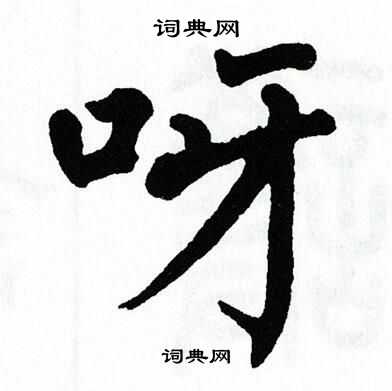 词典网
呀
词典网